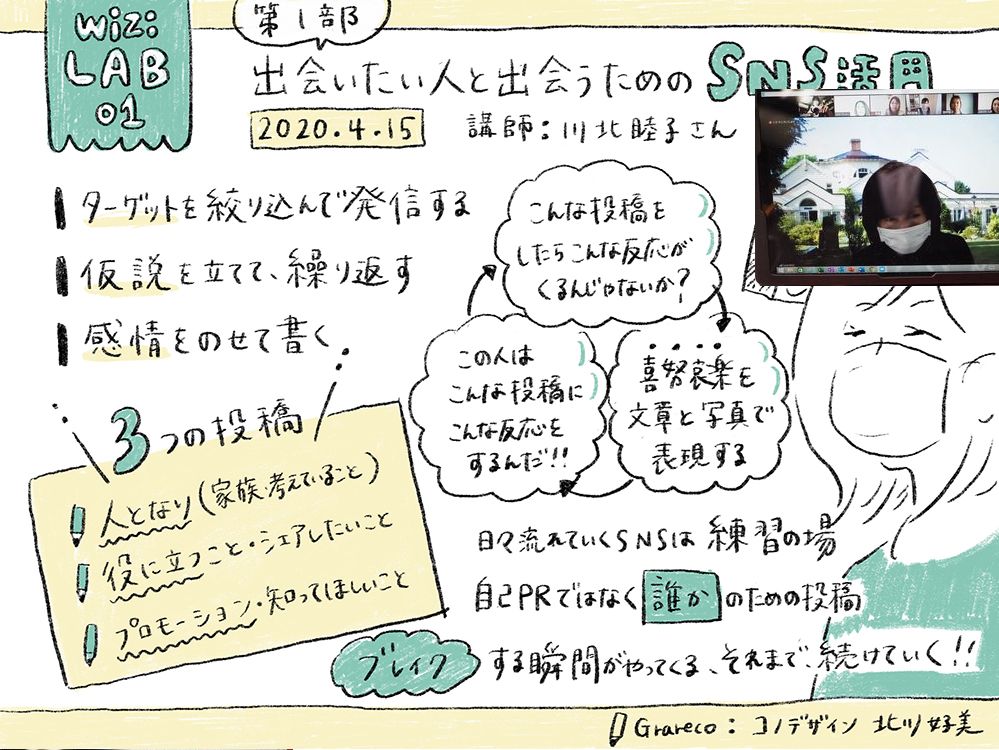 wiz:
LAB
01
第1部
出会いたい人と出会うためのSNS活用
2020.4.15
講師:川北睦子さん
ターゲットを絞り込んで発信する
仮説を立てて、繰り返す
感情をのせて書く
こんな投稿を
したらこんな反応が
くるんじゃないか?
喜怒哀楽を
文章と写真で
表現する
この人は
こんな投稿に
こんな反応を
するんだ!!
3つの投稿
人となり(家族・考えていること)
役に立つこと・シェアしたいこと
プロモーション・知ってほしいこと
日々流れていくSNSは練習の場
自己PRではなく誰かのための投稿
ブレイクする瞬間がやってくる、それまで、続けていく!!
Grareco:コノデザイン 北川好美